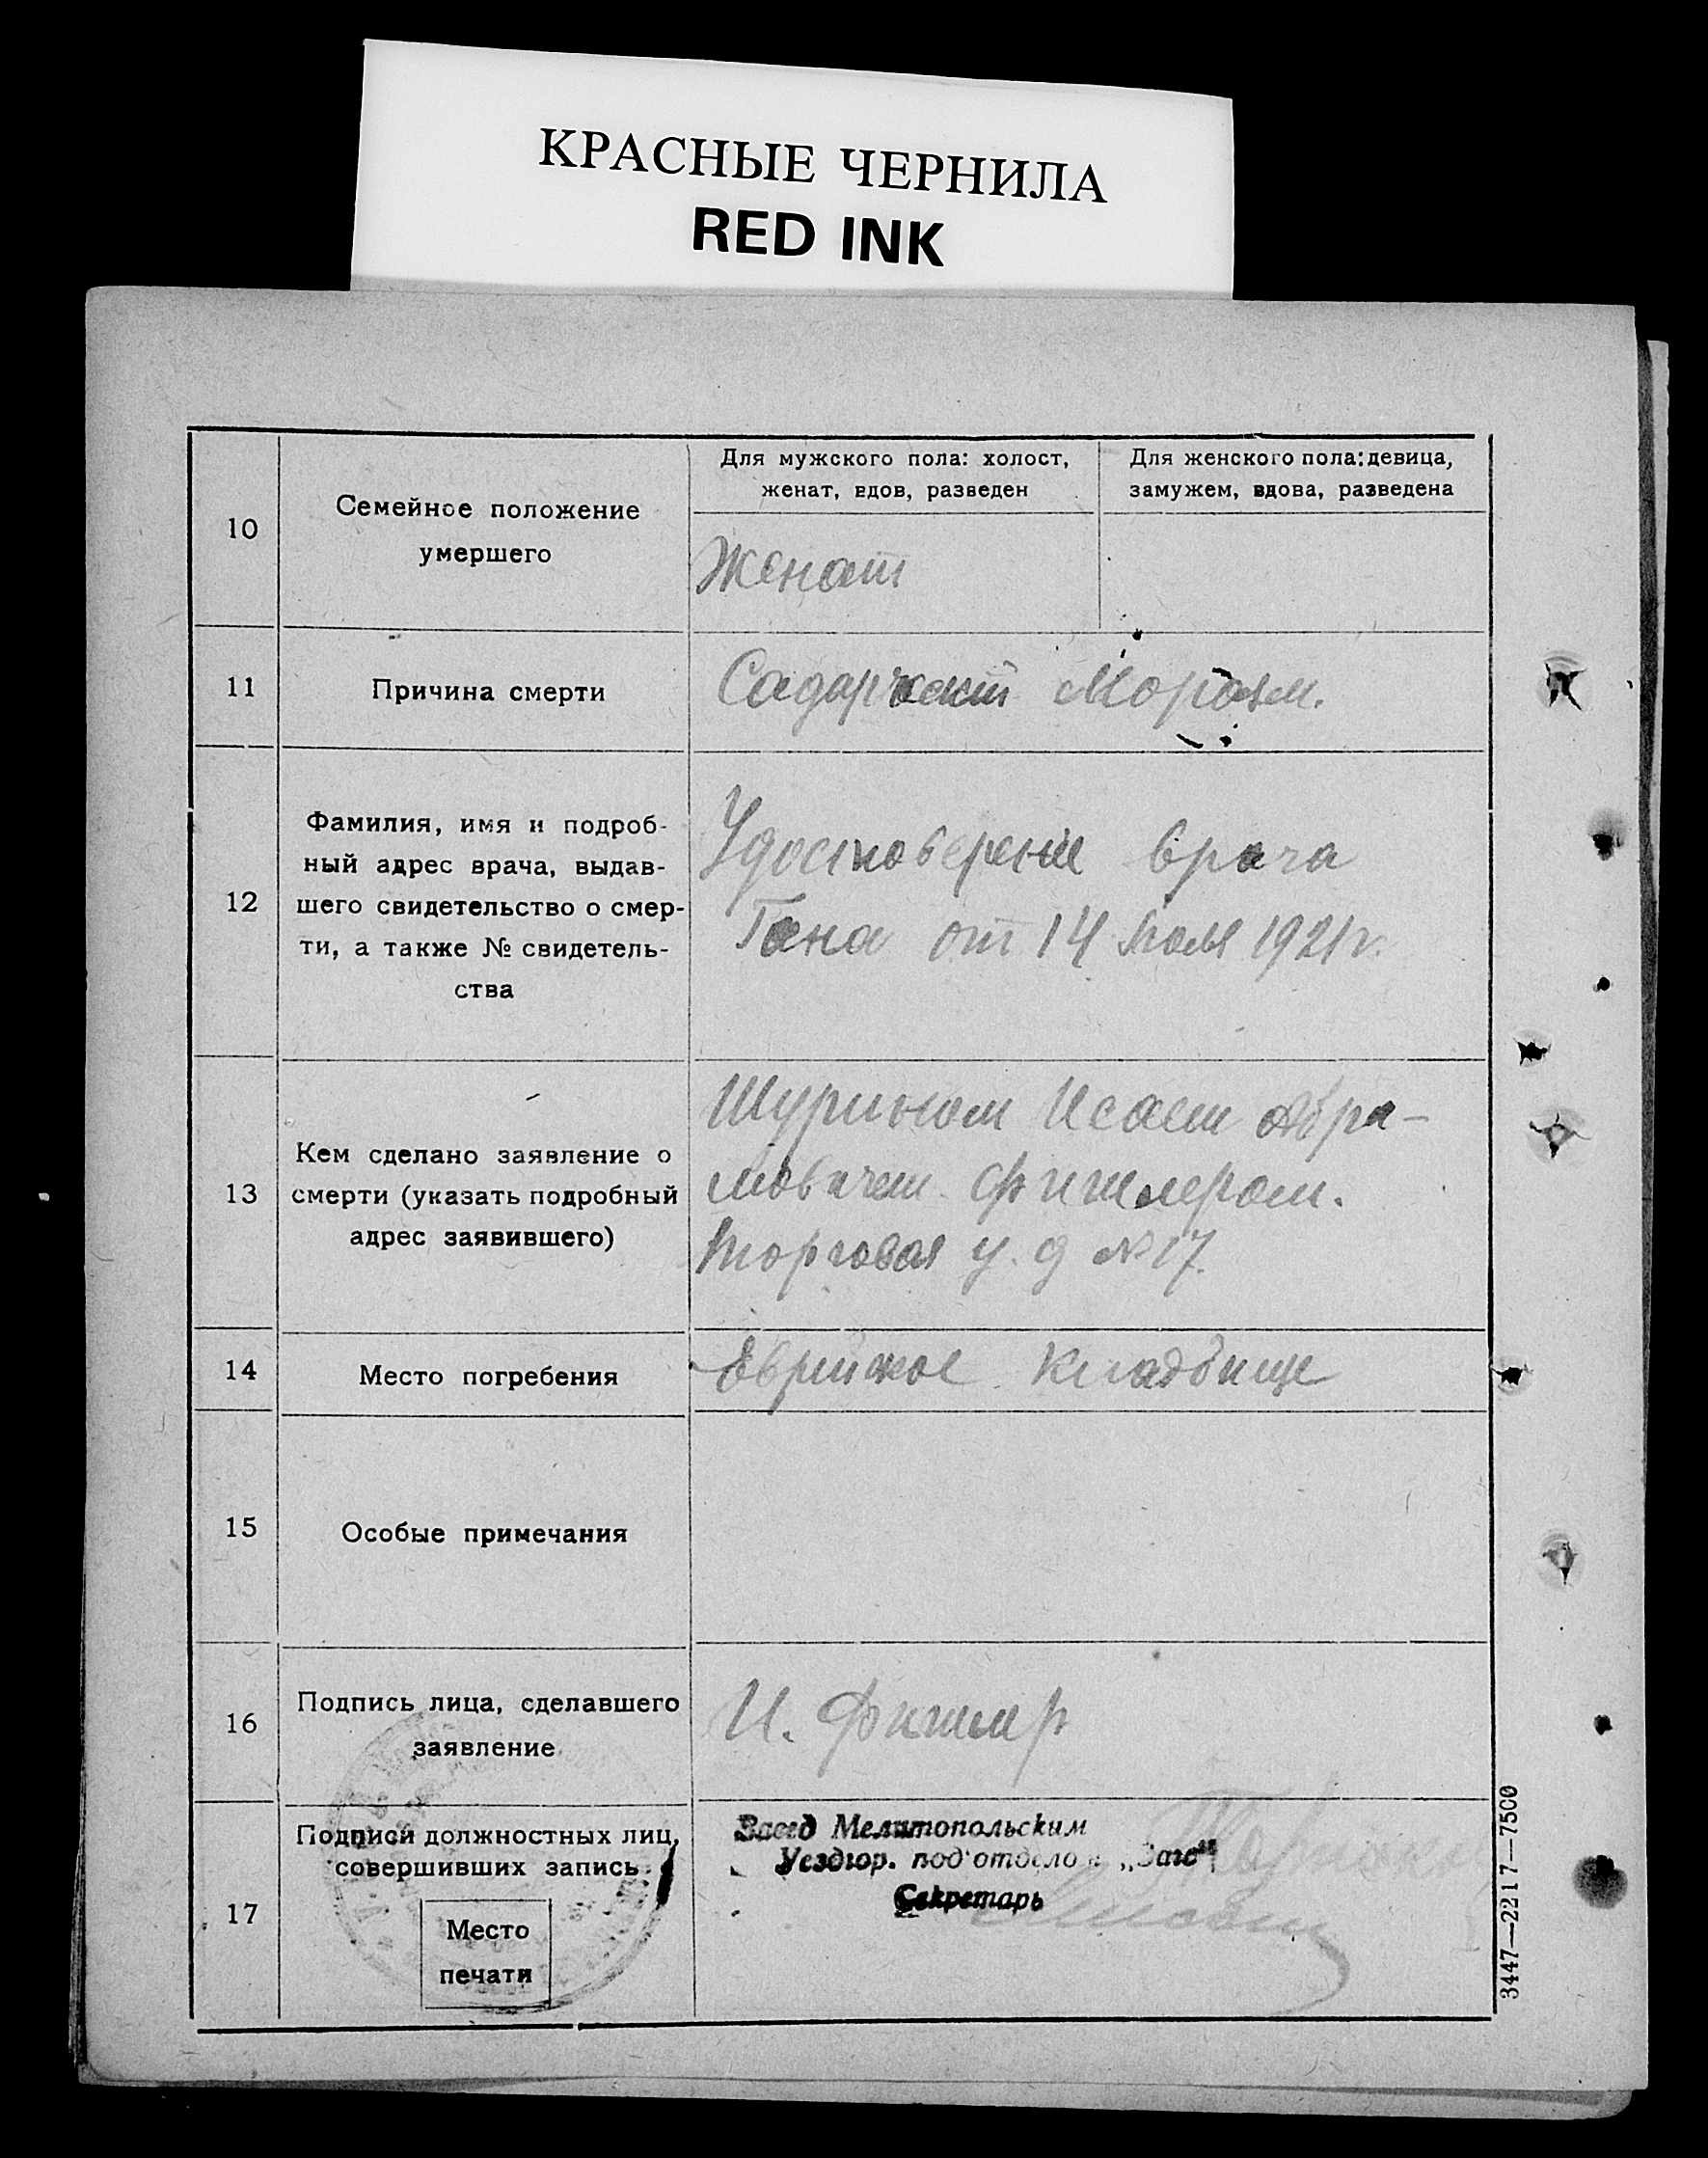 КРАСНЫЕ ЧЕРНИЛА
RED INK
10
Семейное положение
умершего
Для мужского пола: холост,
женат, вдов, разведен
Для женского пола: девица,
замужем, вдова, разведена
Женат
11
Причина смерти
12
Фамилия, имя и подроб-
ный адрес врача, выдав-
шего свидетельство о смер-
ти, а также № свидетель-
ства
Удостоверение врача
Гана от 14 Июля 1921 г.
13
Кем сделано заявление о
смерти (указать подробный
адрес заявившего)
Шурином Исаем Абра-
мовичем Фишлером.
Торговая у. д №17.
14
Место погребения
Еврейское кладбище
15
Особые примечания
16
Подпись лица, сделавшего
заявление
И. Фишлер
17
Подписи должностных лиц,
совершивших запись
Место
печати
Завед Мелитопольским
Уездюр. под'отдело „Загс"
Секретарь
3447—2217—7500